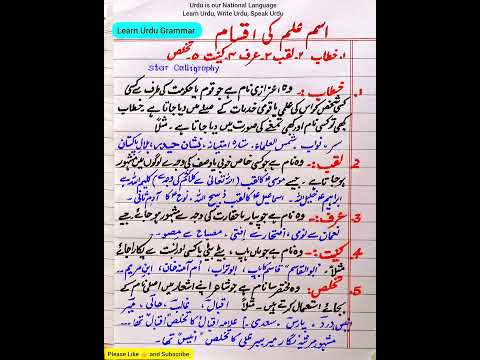 Urdu is our National Language
Learn Urdu, Write Urdu, Speak Urdu
Learn Urdu Grammar
اسم علم کی اقسام
۱۔ خطاب ۲۔ لقب ۳۔ عرف ۴۔ کنیت ۵۔ تخلص
Star Calligraphy
1. خطاب :- وہ اعزازی نام ہے جو قوم یا حکومت کی طرف سے کسی
شخص کو اس کی علمی یا قومی خدمات کے صلے میں دیا جاتا ہے۔ خطاب
کبھی تو کسی نام اور کبھی تمغے کی صورت میں دیا جاتا ہے۔ مثلاً
سر، نواب، شمس العلماء، ستارہ امتیاز، نشان حیدر، ہلال پاکستان
2. لقب :- وہ نام ہے جو کسی خاص خوبی یا وصف کی وجہ سے لوگوں میں مشہور
ہو جاتا ہے۔ جیسے موسیٰؑ کا لقب (اللہ تعالیٰ سے کلام کی وجہ سے) کلیم اللہ ہے
ابراہیمؑ خلیل اللہ۔ اسماعیلؑ کا لقب ذبیح اللہ، نوحؑ کا آدم ثانی۔
3. عرف :- وہ نام ہے جو پیار یا حقارت کی وجہ سے مشہور ہو جائے جیسے
نعمان سے نومی، افتخار سے افتی، مصباح سے مصبو۔
4. کنیت :- وہ نام ہے جو ماں باپ، بیٹے بیٹی یا کسی اور نسبت سے پکارا جائے
مثلاً۔ "ابوالقاسم" قاسم کا باپ، ابو تراب، ام آمنہ خان، ابن مریم۔
5. تخلص: وہ مختصر سا نام ہے جو شاعر اپنے اشعار میں اصل نام کے
بجائے استعمال کرتے ہیں۔ مثلاً اقبال، غالب، حالی، میر
انیس، درد، سعدی۔ علامہ اقبال کا تخلص اقبال تھا۔
مشہور مرثیہ نگار میر ببر علی کا تخلص "انیس" تھا۔
Please Like 👍 and Subscribe